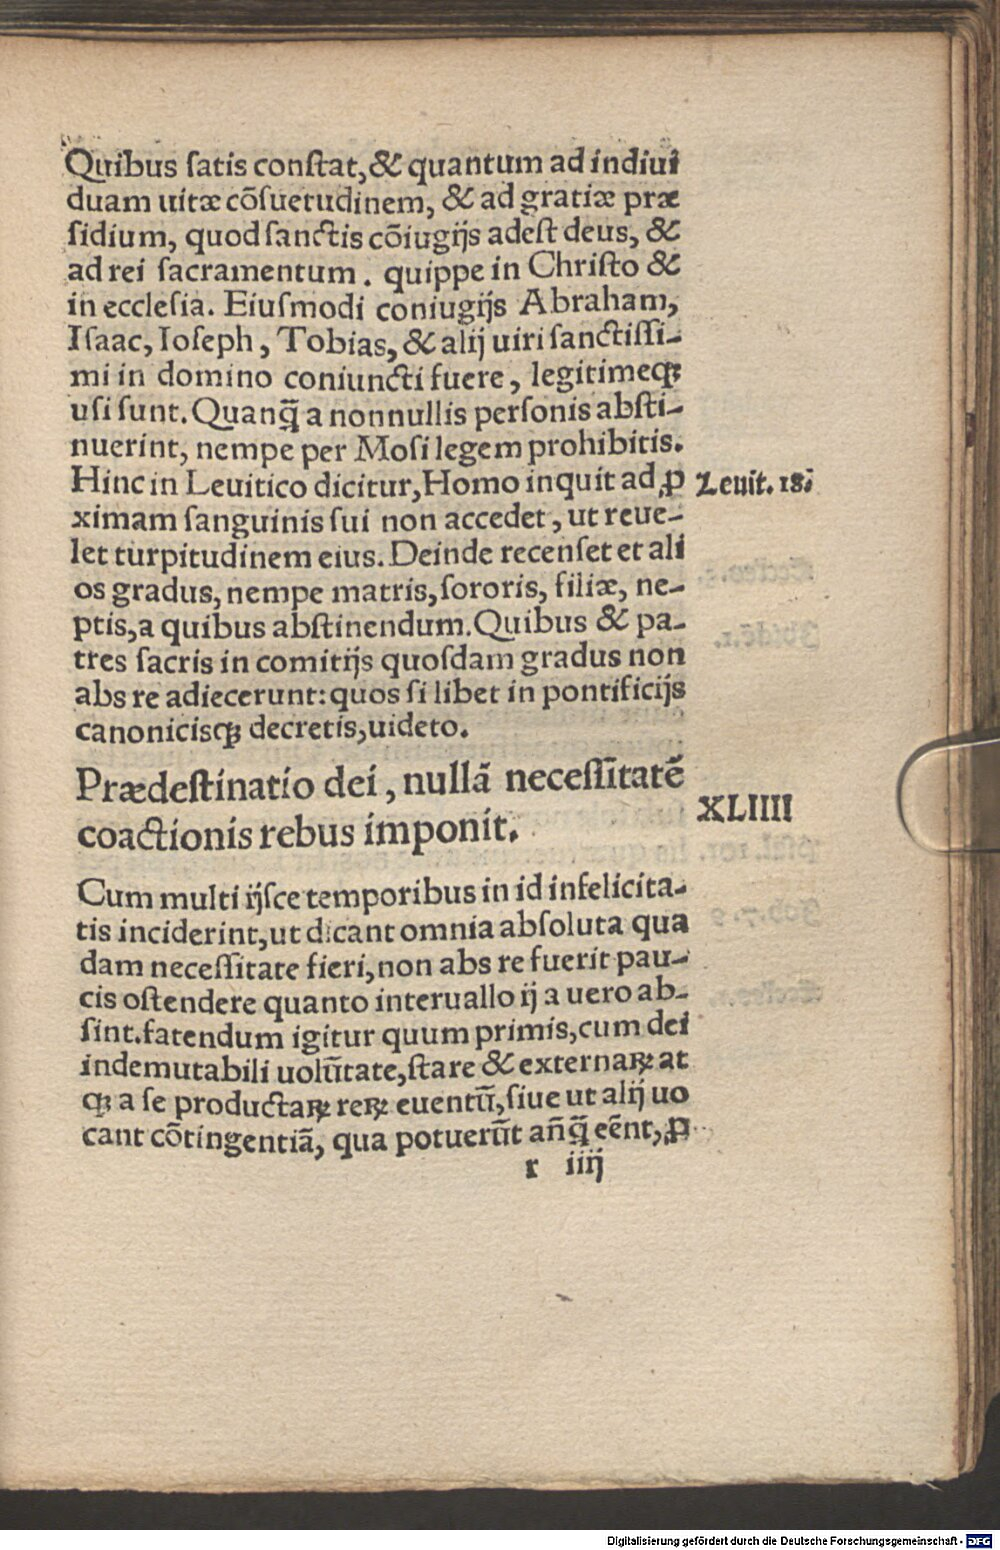 Quibus ſatis conſtat, & quantum ad indiui
duam uitæ cõſuetudinem, & ad gratiæ præ
ſidium, quod ſanctis cõiugijs adeſt deus, &
ad rei ſacramentum. quippe in Chriſto &
in eccleſia. Eiuſmodi coniugijs Abraham,
Iſaac, Ioſeph, Tobias, & alij uiri ſanctiſſi-
mi in domino coniuncti fuere, legitimeqꝫ
uſi ſunt. Quanq̃ a nonnullis perſonis abſti-
nuerint, nempe per Moſi legem prohibitis.
Hinc in Leuitico dicitur, Homo inquit ad ꝓ
Leuit. 18.
ximam ſanguinis ſui non accedet, ut reue-
let turpitudinem eius. Deinde recenſet et ali
os gradus, nempe matris, ſororis, filiæ, ne-
ptis, a quibus abſtinendum. Quibus & pa-
tres ſacris in comitijs quoſdam gradus non
abs re adiecerunt: quos ſi libet in pontificijs
canonicisqꝫ decretis, uideto.
Prædeſtinatio dei, nullã neceſſitatẽ
coactionis rebus imponit.
XLIIII
Cum multi ijſce temporibus in id infelicita-
tis inciderint, ut dicant omnia abſoluta qua
dam neceſſitate fieri, non abs re fuerit pau-
cis oſtendere quanto interuallo ij a uero ab-
ſint. fatendum igitur quum primis, cum dei
indemutabili uolũtate, ſtare & externaꝝ at
qꝫ a ſe productaꝝ reꝝ euentũ, ſiue ut alij uo
cant cõtingentiã, qua potuerũt añq̃ eẽnt, ꝓ
r iiij
Digitalisierung gefördert durch die Deutsche Forschungsgemeinschaft - DFG